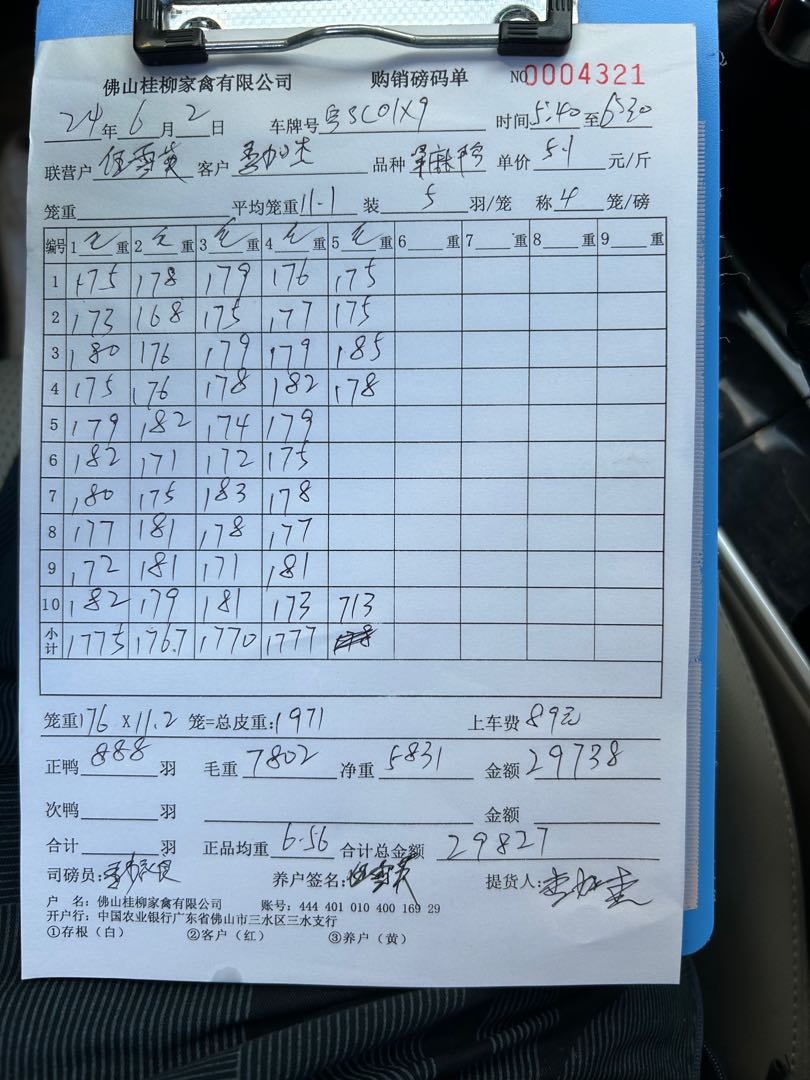 佛山桂柳家禽有限公司 购销磅码单 NO 0004321
24年6月2日 车牌号粤SC01X9 时间5.40至6.30
联营户 伍雪英 客户 品种 麻鸭 单价5.1元/斤
笼重 平均笼重11.1装5羽/笼 称4笼/磅
编号 1毛重 2毛重 3毛重 4毛重 5毛重 6重 7重 8重 9重
1 175 178 179 176 175
2 173 168 175 177 175
3 180 176 179 179 185
4 175 176 178 182 178
5 179 182 174 179
6 182 171 172 175
7 180 175 183 178
8 177 181 178 177
9 172 181 171 181
10 182 179 181 173 713
小计 1775 1767 1770 1777
笼重176X11.2笼=总皮重:1971 上车费89元
正鸭888羽 毛重7802净重5831 金额29738
次鸭羽 金额
合计羽 正品均重6.56合计总金额29827
司磅员: 养户签名:伍雪英 提货人:
户 名:佛山桂柳家禽有限公司 账号:444 401 010 400 169 29
开户行:中国农业银行广东省佛山市三水区三水支行
①存根(白) ②客户(红) ③养户(黄)